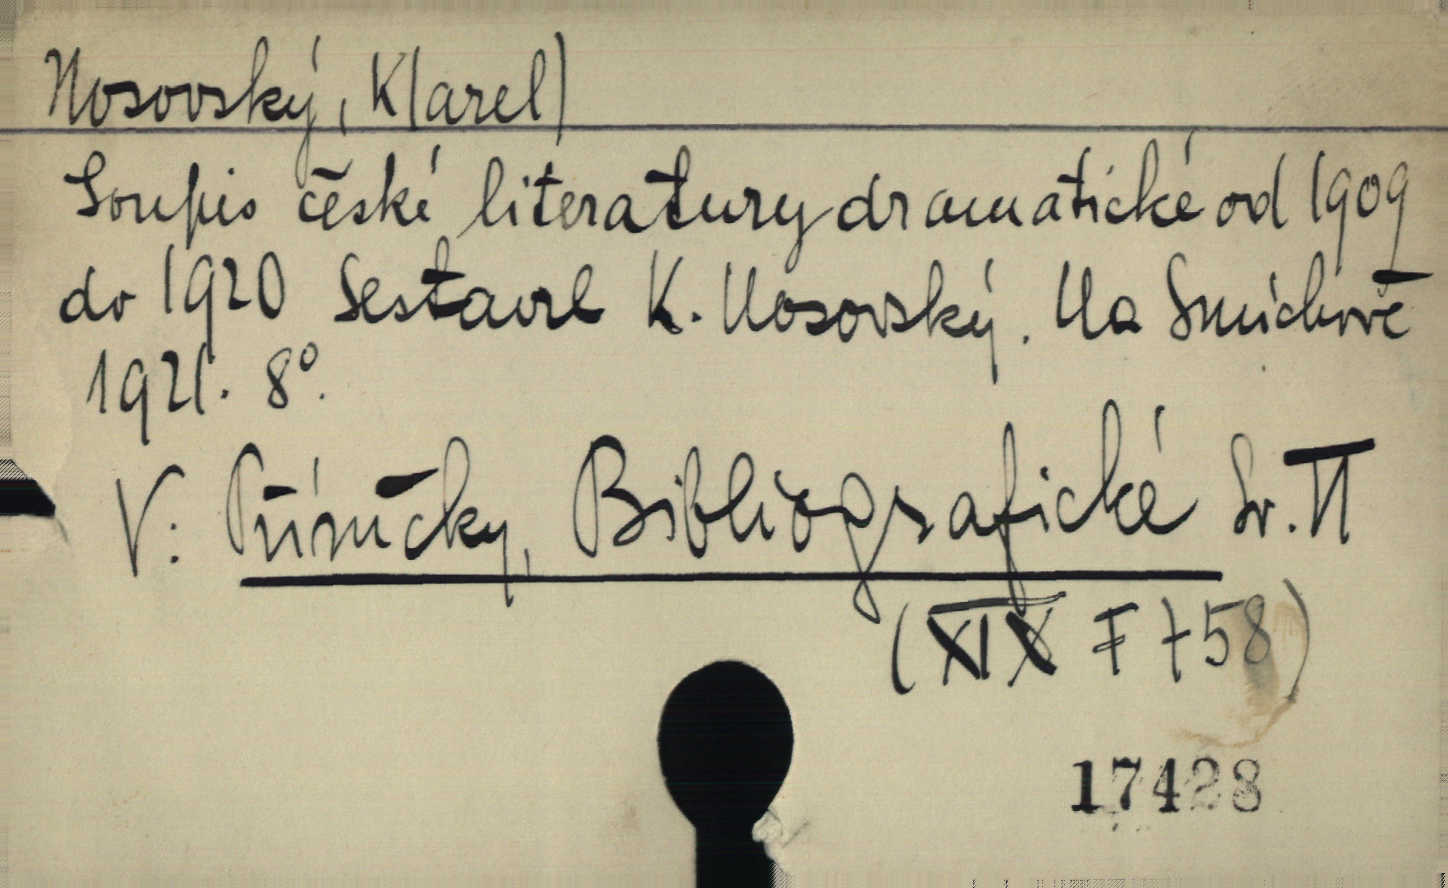 Nosovský, K(arel)
Soupis české literatury dramatické od 1909
do 1920 Sestavil K. Nosovský. Na Smíchově
1921. 8°.
V: Příručky, Bibliografické Sv. II
(XIX F 758)
17428